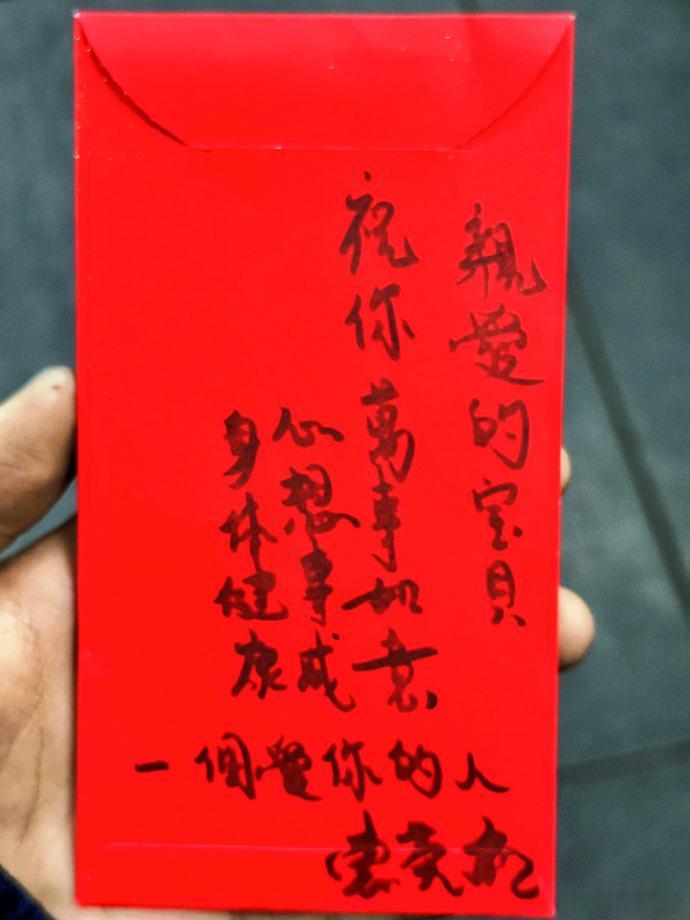 親愛的宝貝
祝你萬事如意
心想事成
身体健康
一個愛你的人